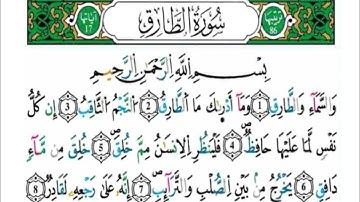 ترتيبها 86 سُورَةُ الطَّارِقِ آياتها 17
بِسْمِ اللَّهِ الرَّحْمَنِ الرَّحِيمِ
وَالسَّمَاءِ وَالطَّارِقِ 1 وَمَا أَدْرَاكَ مَا الطَّارِقُ 2 النَّجْمُ الثَّاقِبُ 3 إِنْ كُلُّ
نَفْسٍ لَمَّا عَلَيْهَا حَافِظٌ 4 فَلْيَنْظُرِ الْإِنْسَانُ مِمَّ خُلِقَ 5 خُلِقَ مِنْ مَاءٍ
دَافِقٍ 6 يَخْرُجُ مِنْ بَيْنِ الصُّلْبِ وَالتَّرَائِبِ 7 إِنَّهُ عَلَى رَجْعِهِ لَقَادِرٌ 8